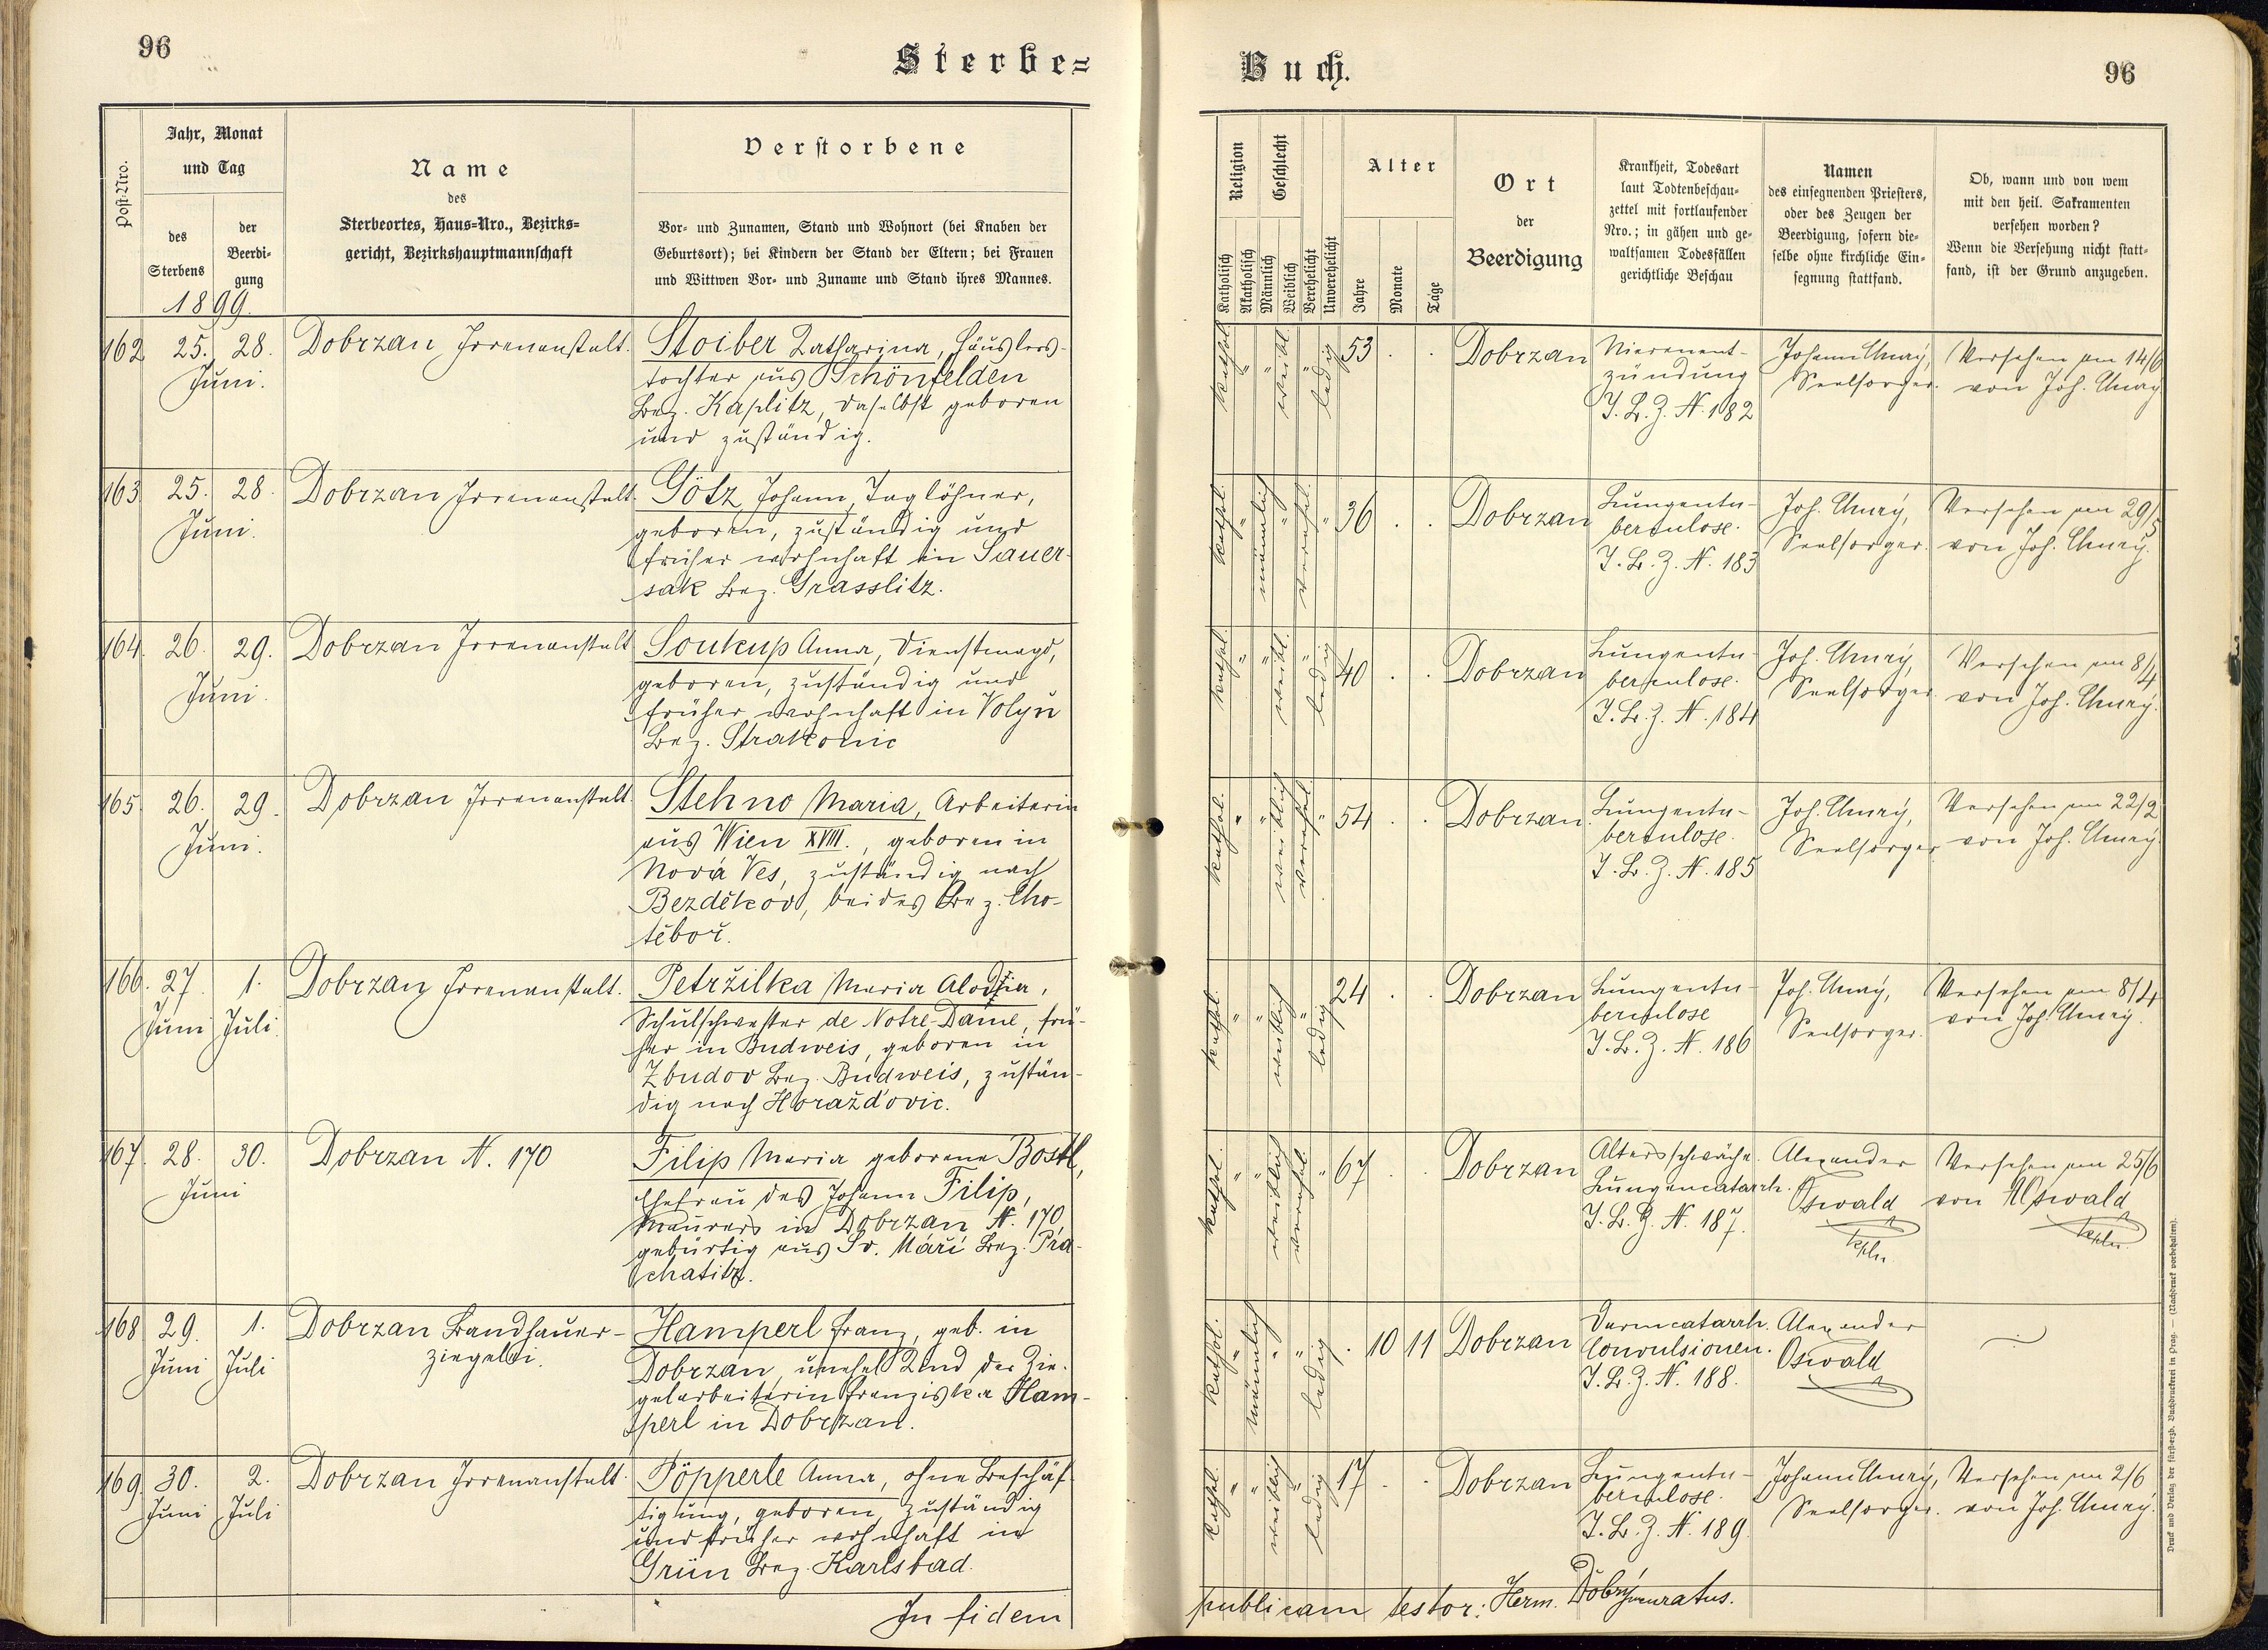 96
Sterbe=
Post-Nro.
Jahr, Monat
und Tag
des
Sterbens
der
Beerdi-
gung
1899.
Name
des
Sterbeortes, Haus=Nro., Bezirks=
gericht, Bezirkshauptmannschaft
Verstorbene
Vor- und Zunamen, Stand und Wohnort (bei Knaben der
Geburtsort); bei Kindern der Stand der Eltern; bei Frauen
und Wittwen Vor- und Zuname und Stand ihres Mannes.
162 25. 28. Dobrzan Irrenanstalt. Stoiber Katharina, Häuslers-
Juni. tochter aus Schönfelden
Bez. Kaplitz, daselbst geboren
und zuständig.
163 25. 28. Dobrzan Irrenanstalt. Götz Johann, Taglöhner,
Juni. geboren, zuständig und
früher wohnhaft in Sauer-
sak Bez. Grasslitz.
164. 26. 29. Dobrzan Irrenanstalt Soukup Anna, Dienstmagd,
Juni. geboren, zuständig und
früher wohnhaft in Volyň
Bez. Strakonic
165. 26. 29. Dobrzan Irrenanstalt. Stehno Maria, Arbeiterin
Juni. aus Wien XVIII., geboren in
Nová Ves, zuständig nach
Bezděkov, beides Bez. Cho-
těboř.
166. 27. 1. Dobrzan Irrenanstalt. Petržilka Maria Alodia,
Juni Juli. Schulschwester de Notre-Dame, frü-
her in Budweis, geboren in
Zbudov Bez. Budweis, zustän-
dig nach Horažďovic.
167. 28. 30. Dobrzan N. 170 Filip Maria geborene Bostl,
Juni Ehefrau des Johann Filip,
Maurers in Dobrzan N. 170,
gebürtig aus Sv. Máří Bez. Pra-
chatitz.
168 29. 1. Dobrzan Landhauer- Hamperl Franz, geb. in
Juni Juli ziegelei. Dobrzan, unehel. Kind der Zie-
gelarbeiterin Franziska Ham-
perl in Dobrzan.
169. 30. 2. Dobrzan Irrenanstalt. Pöpperle Anna, ohne Beschäf-
Juni Juli tigung, geboren, zuständig
und früher wohnhaft in
Grün Bez. Karlsbad.
In fidem
Buch.
96
Religion
Katholisch
Akatholisch
Geschlecht
Männlich
Weiblich
Verehelicht
Unverehelicht
Alter
Jahre
Monate
Tage
Ort
der
Beerdigung
Krankheit, Todesart
laut Todtenbeschau-
zettel mit fortlaufender
Nro.; in gähen und ge-
waltsamen Todesfällen
gerichtliche Beschau
Namen
des einsegnenden Priesters,
oder des Zeugen der
Beerdigung, sofern die-
selbe ohne kirchliche Ein-
segnung stattfand.
Ob, wann und von wem
mit den heil. Sakramenten
versehen worden?
Wenn die Versehung nicht statt-
fand, ist der Grund anzugeben.
kathol. " " weibl. " ledig 53 . . Dobrzan Nierenent- Johann Versehen am 14/6
zündung Seelsorger. von Joh.
T. B. Z. N. 182
kathol. " männlich " verehel. " 36 . . Dobrzan Lungentu- Joh. Versehen am 29/5
berculose. Seelsorger. von Joh.
T. B. Z. N. 183
kathol. " " weibl. " ledig 40 . . Dobrzan Lungentu- Joh. Versehen am 8/4
berculose. Seelsorger. von Joh.
T. B. Z. N. 184
kathol. " " weiblich verehel. " 54 . . Dobrzan Lungentu- Joh. Versehen am 22/2
berculose. Seelsorger von Joh.
T. B. Z. N. 185
kathol. " " weiblich " ledig 24 . . Dobrzan Lungentu- Joh. Versehen am 8/4
berculose Seelsorger. von Joh.
T. B. Z. N. 186
kathol. " " weiblich verehel. " 67 . . Dobrzan Altersschwäche. Alexander Versehen am 25/6
Lungencatarrh. Oswald von A Oswald
T. B. Z. N. 187. Kpln. Kpln.
kathol. " männlich " " ledig . 10 11 Dobrzan Darmcatarrh. Alexander
Convulsionen. Oswald
T. B. Z. N. 188.
kathol. " " weiblich " ledig 17 . . Dobrzan Lungentu- Johann Versehen am 2/6
berculose. Seelsorger. von Joh.
T. B. Z. N. 189.
publicam testor: Herm. Dobrý curatus.
Druck und Verlag der fürsterzb. Buchdruckerei in Prag. — (Nachdruck vorbehalten).